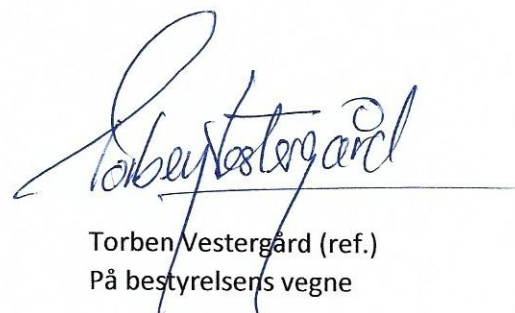 Torben Vestergård
Torben Vestergård (ref.)
På bestyrelsens vegne